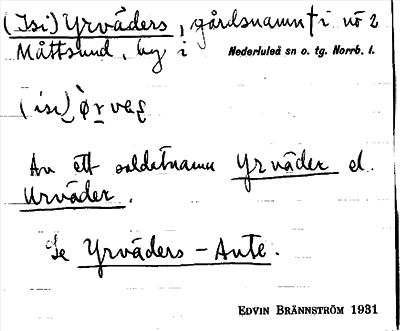 (Isi) Yrväders, gårdsnamn † i nö 2
Måttsund, by i Nederluleå sn o. tg. Norrb. l.
(isi)
Av ett soldatnamn Yrväder el.
Urväder.
Se Yrväders – Ante.
EDVIN BRÄNNSTRÖM 1931